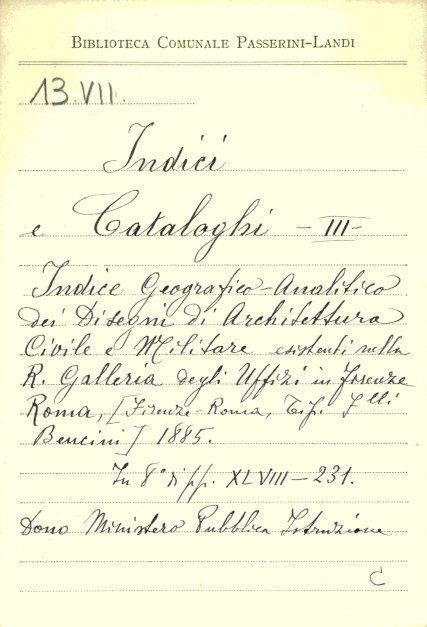 BIBLIOTECA COMUNALE PASSERINI-LANDI
13.VII.
Indici
e Cataloghi - III -
Indice Geografico-Analitico
dei Disegni di Architettura
Civile e Militare esistenti nella
R. Galleria degli Uffizi in Firenze
Roma, [Firenze-Roma, Tip. Flli
Bencini] 1885.
In 8° di pp. XLVIII-231.
Dono Ministero Pubblica Istruzione
C